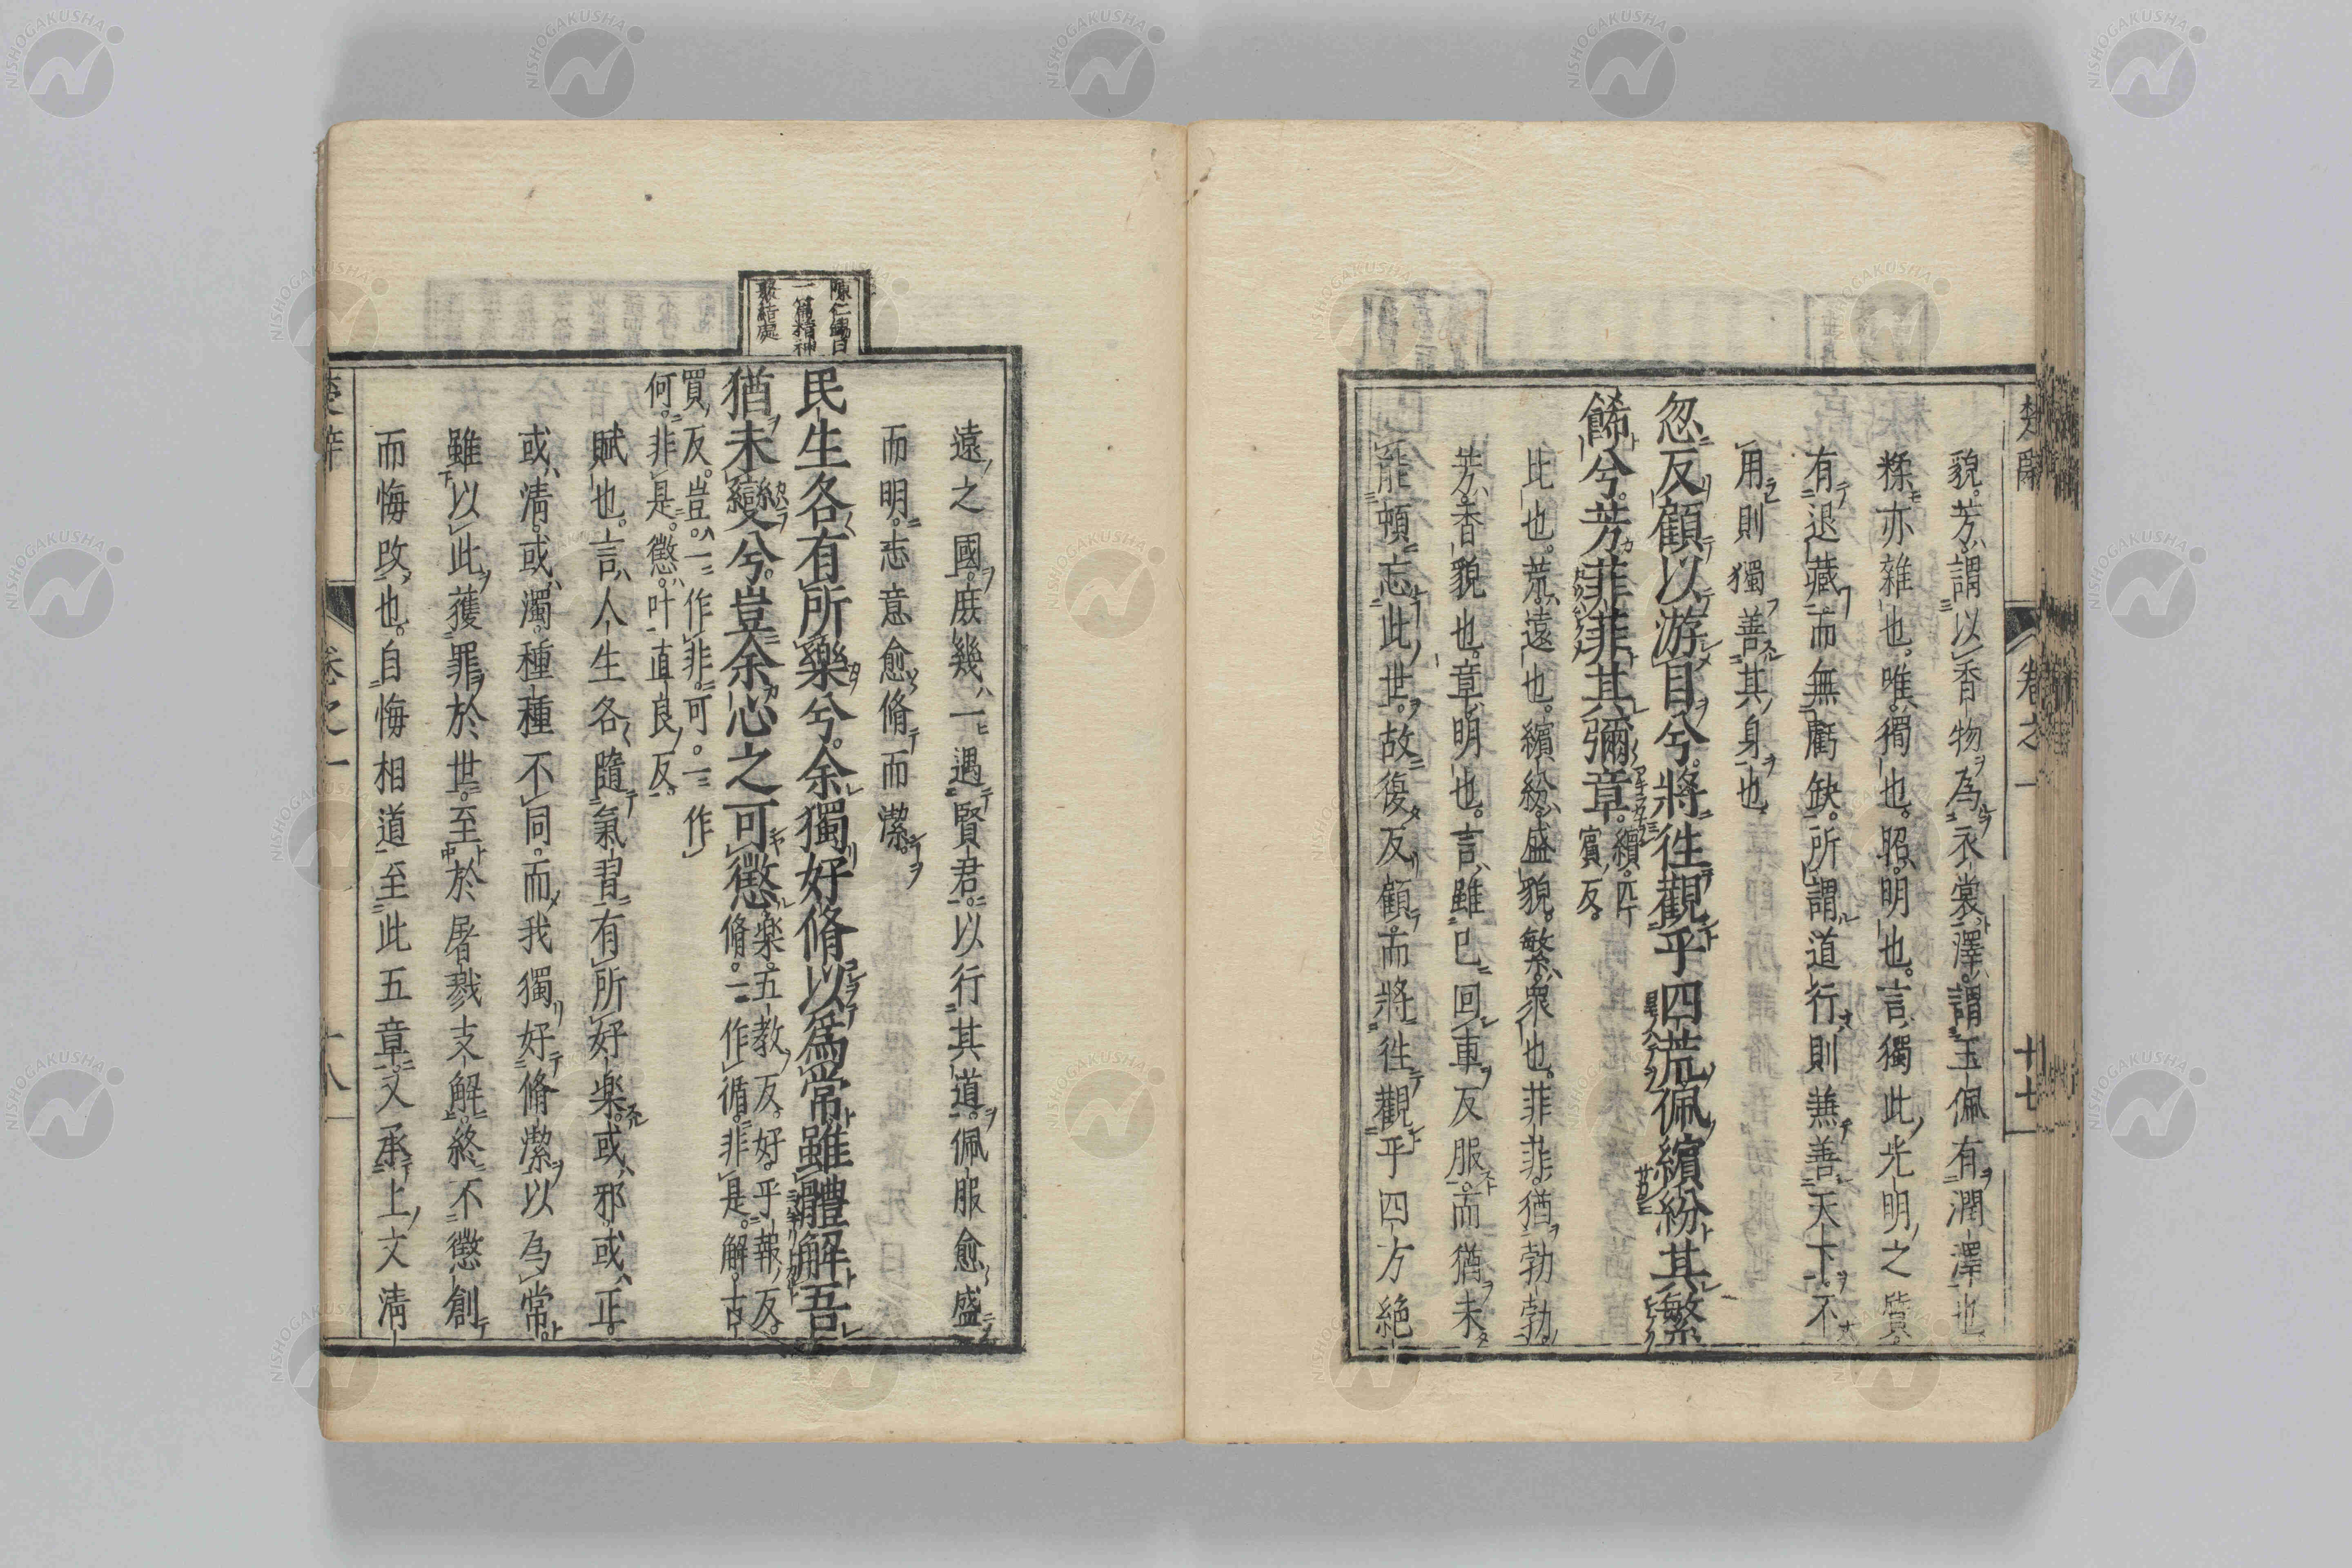 楚辭 卷之一 十七
貌。芳謂以香物為衣裳。澤謂玉佩有潤澤也。
糅亦雜也。唯獨也。昭明也。言獨此光明之質。
有退藏而無虧缺。所謂道行則兼善天下。不
用則獨善其身也。
忽反顧以游目兮。將往觀乎四荒。佩繽紛其繁
餙兮。芳菲菲其彌章。繽。匹賓反。
比也。荒。遠也。繽紛。盛貌。繁。衆也。菲菲。猶勃勃。
芳香貌也。章。明也。言雖已回車反服。而猶未
能頓忘此世。故復反顧而將往觀乎四方絶
遠之國。庶幾一遇賢君。以行其道。佩服愈盛
而明。志意愈脩而潔。
陳仁錫曰
一篇精神
聚結處
民生各有所樂兮。余獨好脩以爲常。雖體解吾
猶未變兮。豈余心之可懲。樂。五教反。好。乎報反。脩。一作循。非是。解。古
買反。豈。一作非。可。一作
何。非是。懲。叶直良反。
賦也。言人生各隨氣習有所好樂。或邪。或正。
或清。或濁。種種不同。而我獨好脩潔以為常。
雖以此獲罪於世。至於屠戮支解。終不懲創
而悔改也。自悔相道至此五章。又承上文清
楚辭 卷之一 十八
NISHOGAKUSHA